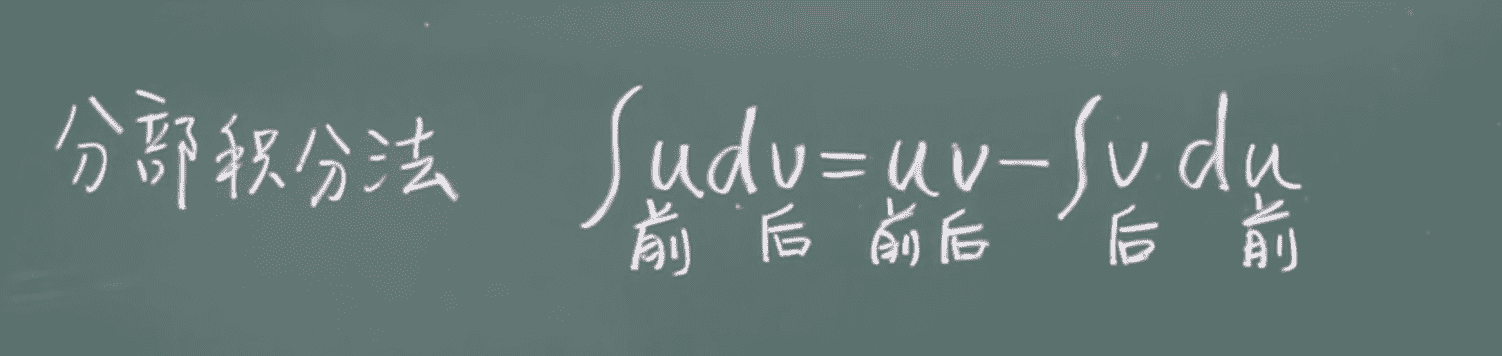 分部积分法 ∫udv=uv-∫vdu
前 后 前后 后 前